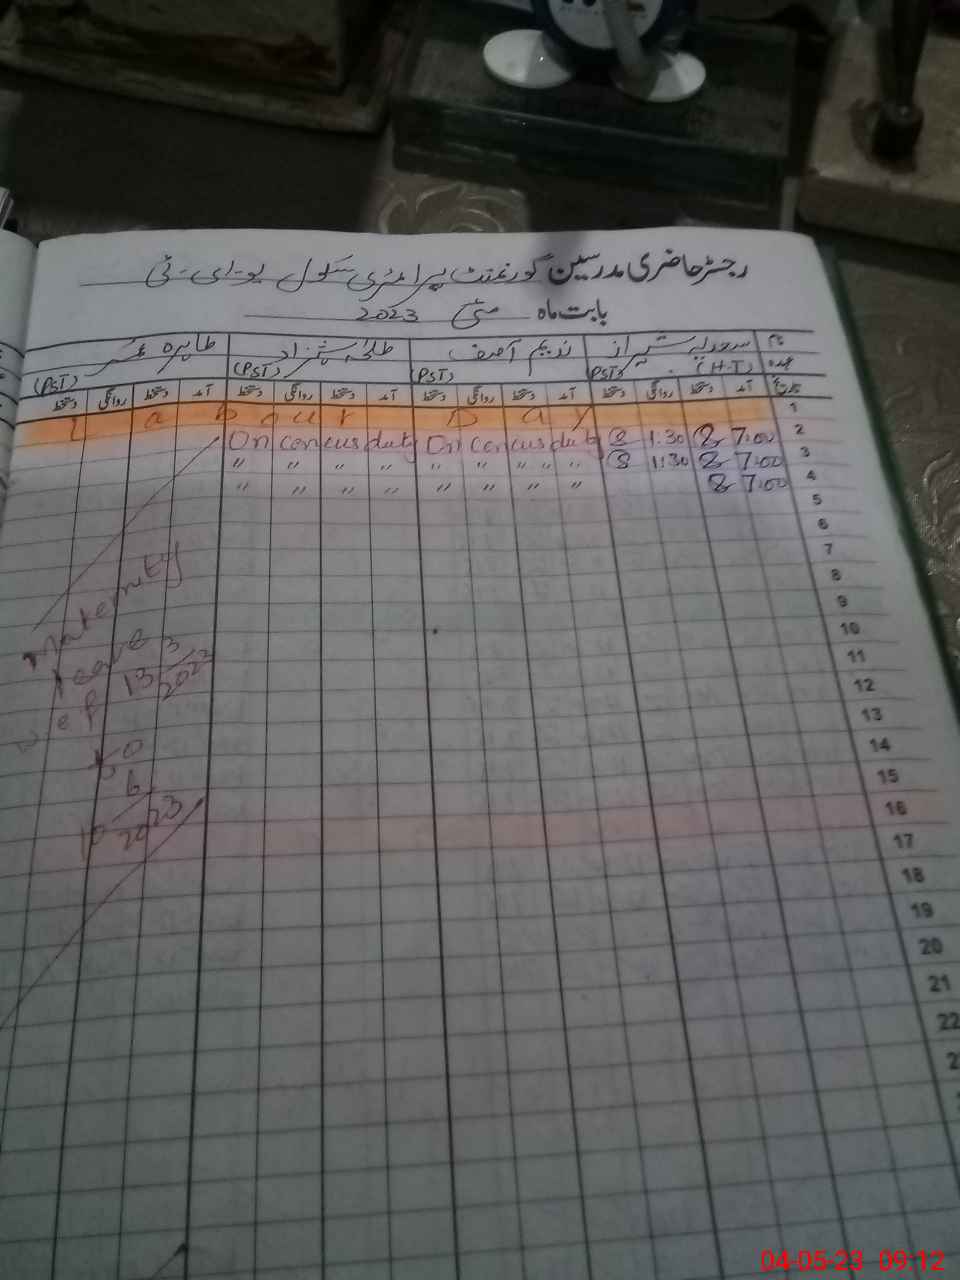 رجسٹر حاضری مدرسین گورنمنٹ پرائمری سکول یو-ای-ٹی
بابت ماہ مئی 2023
نام سعدیہ شیراز ندیم آصف طلحہ شہزاد طاہرہ
عہدہ (H.T) (PST) (PST) (PST)
تاریخ آمد دستخط روانگی دستخط آمد دستخط روانگی دستخط آمد دستخط روانگی دستخط آمد دستخط روانگی دستخط
L a b o u r D a y 1
On cencus duty On cencus duty 1:30 7:00 2
" " " " " " " " 1:30 7:00 3
" " " " " " " " 7:00 4
5
6
7
8
9
10
11
12
13
14
15
16
17
18
19
20
21
22
Maternity
leave
wef 13/3/2023
to
10/6/2023
04-05-23 09:12